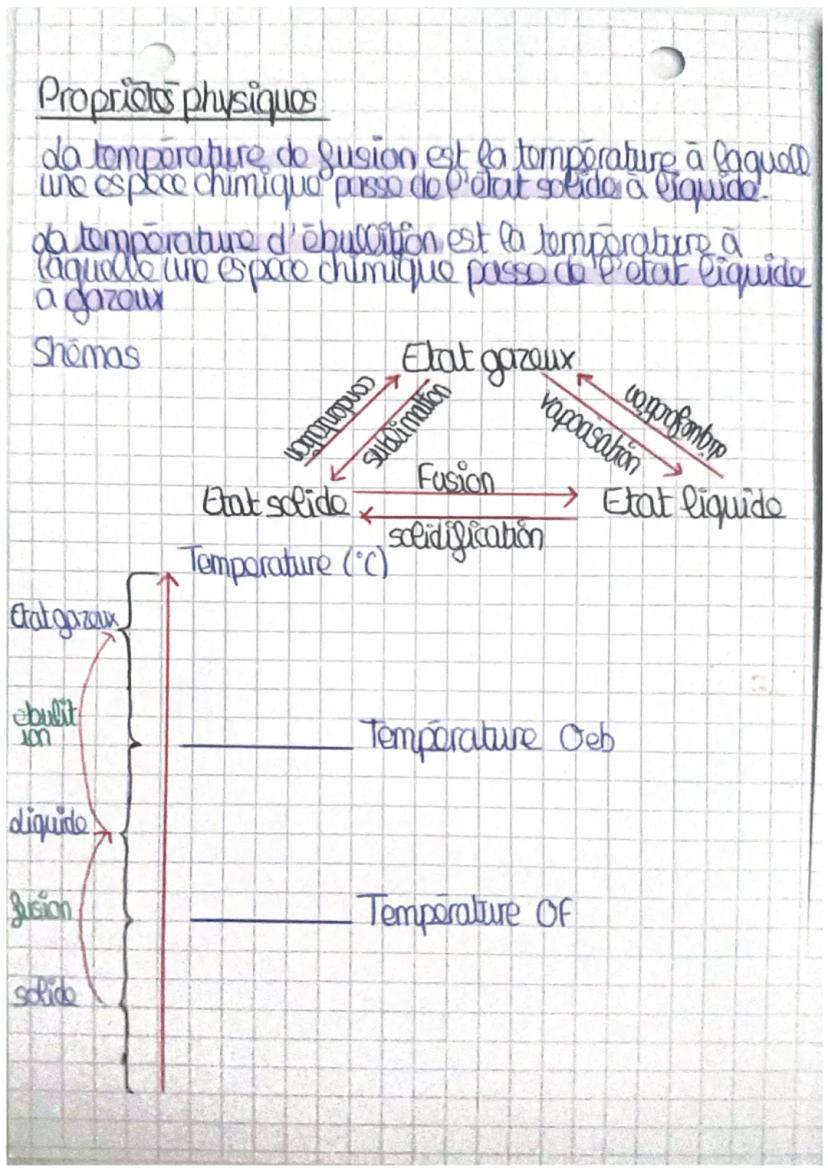 Propriétés physiques
La température de fusion est la température à laquell
une espece chimique passe de l'état solide à liquide.
La température d'ébullition est la température à
laquelle une espece chimique passe de l'etat liquide
à gazeux
Shémas
Etat gazeux
sublimation
vaporisation
Fusion
Etat solide
Etat liquide
solidification
Temperature (°C)
Etat gazeux
ebulit
ion
Température θeb
Liquide
fusion
Température θF
solide